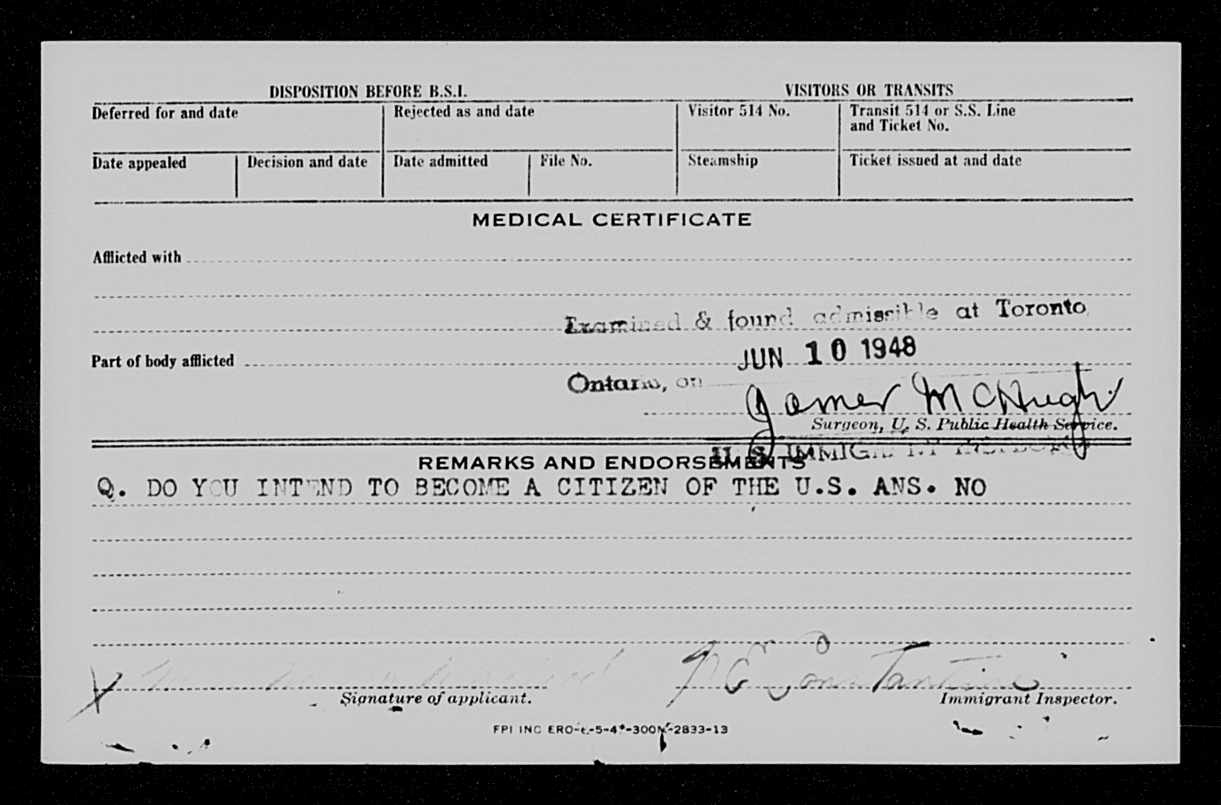 DISPOSITION BEFORE B.S.I. VISITORS OR TRANSITS
Deferred for and date Rejected as and date Visitor 514 No. Transit 514 or S.S. Line
and Ticket No.
Date appealed Decision and date Date admitted File No. Steamship Ticket issued at and date
MEDICAL CERTIFICATE
Afflicted with
Examined & found admissible at Toronto
Part of body afflicted
JUN 10 1948
Ontario, on
James McHugh
Surgeon, U. S. Public Health Service.
U.S. IMMIGRANT INSPECTOR
REMARKS AND ENDORSEMENTS
Q. DO YOU INTEND TO BECOME A CITIZEN OF THE U.S. ANS. NO
X Constantine
Signature of applicant. Immigrant Inspector.
FPI INC